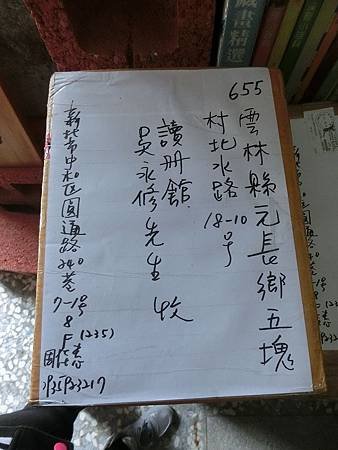 655
雲林縣元長鄉五塊
村北水路18-10號
讀冊館
吳永修先生 收
新北市中和區圓通路340巷
7-1号
8F(235)
藏書精選